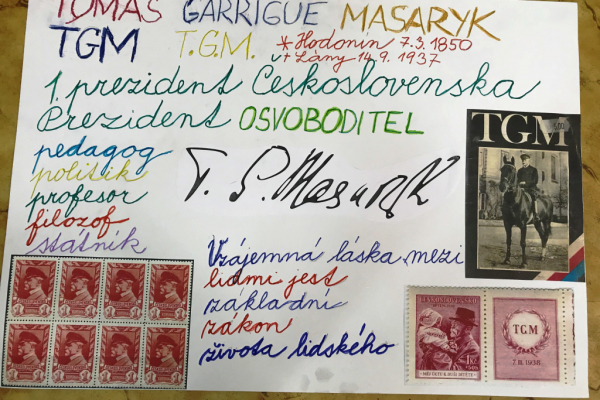 TOMÁŠ GARRIGUE MASARYK
TGM T.G.M. * Hodonín 7.3. 1850
† Lány 14.9. 1937
1. prezident Československa
Prezident OSVOBODITEL
pedagog
politik
profesor
filozof
státník
T. G. Masaryk
TGM
Vzájemná láska mezi
lidmi jest
základní
zákon
života lidského
ČESKOSLOVENSKO
TGM
7. III. 1938